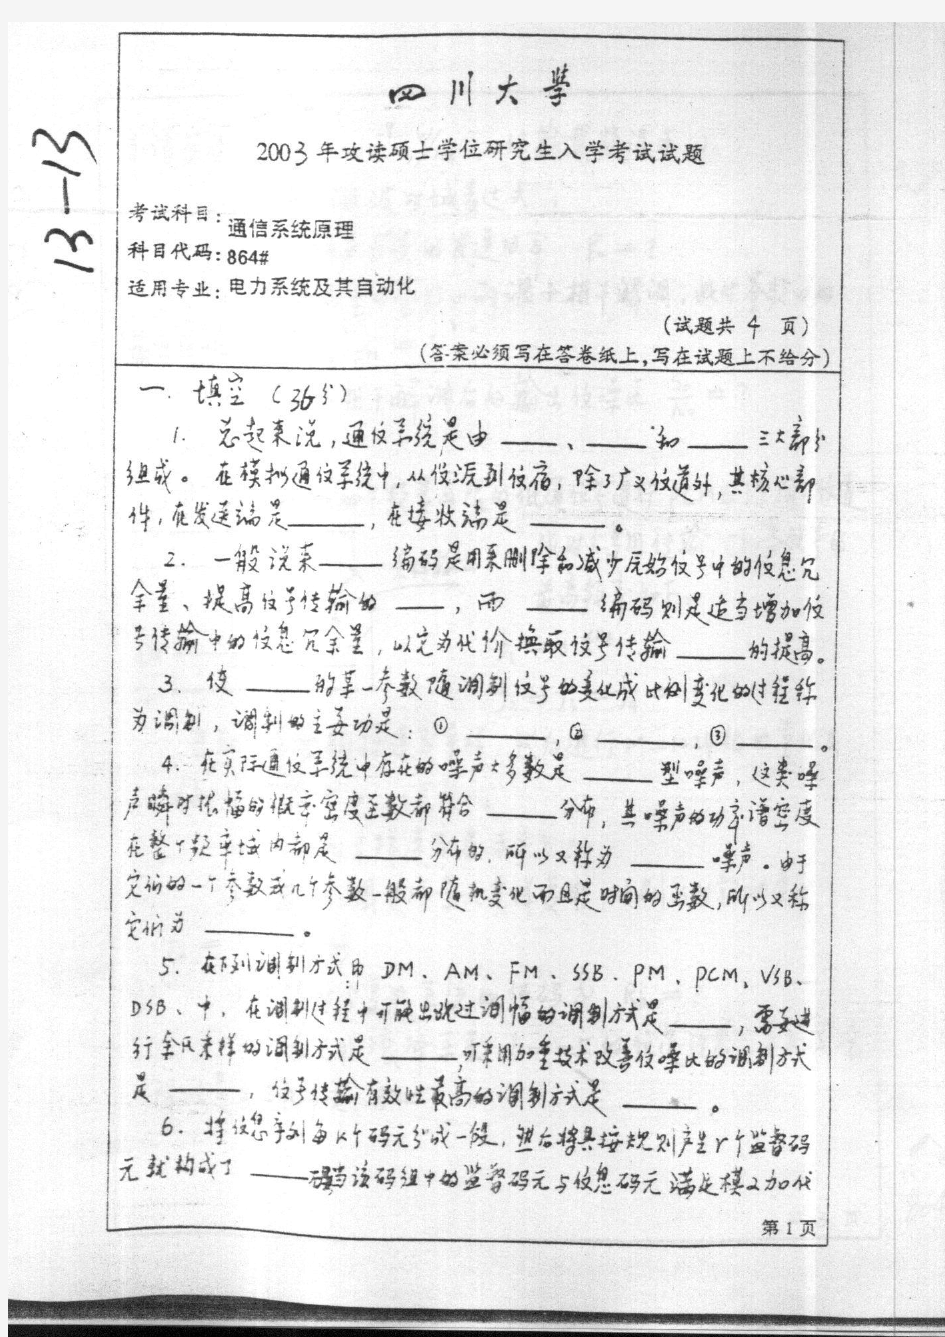 13-13
四川大学
2003年攻读硕士学位研究生入学考试试题
考试科目：通信系统原理
科目代码：864#
适用专业：电力系统及其自动化
（试题共 4 页）
（答案必须写在答卷纸上，写在试题上不给分）
一. 填空（36分）
1. 总起来说，通信系统是由 ____、____和 ____ 三大部分
组成。在模拟通信系统中，从信源到信宿，除了广义信道外，其核心部
件，在发送端是____，在接收端是 ____。
2. 一般说来____ 编码是用来删除和减少原始信号中的信息冗
余量、提高信号传输的 ____，而 ____ 编码则是适当增加信
号传输中的信息冗余量，以它为代价换取信号传输 ____的提高。
3. 使 ____的某一参数随调制信号的变化成比例变化的过程称
为调制，调制的主要功是：① ____，② ____，③ ____。
4. 在实际通信系统中存在的噪声大多数是 ____ 型噪声，这类噪
声瞬时振幅的概率密度函数都符合 ____ 分布，其噪声的功率谱密度
在整个频率域内都是 ____ 分布的，所以又称为 ____ 噪声。由于
它们的一个参数或几个参数一般都随机变化而且是时间的函数，所以又称
它们为 ____。
5. 在下列调制方式由 DM、AM、FM、SSB、PM、PCM、VSB、
DSB、中，在调制过程中可能出现过调幅的调制方式是____，需要进
行 采样的调制方式是 ____，可采用加重技术改善信噪比的调制方式
是 ____，信号传输有效性最高的调制方式是 ____。
6. 将信息序列每K个码元分成一段，然后将其按规则产生r个监督码
元就构成了 ____码当该码组中的监督码元与信息码元满足模2加代
第1页